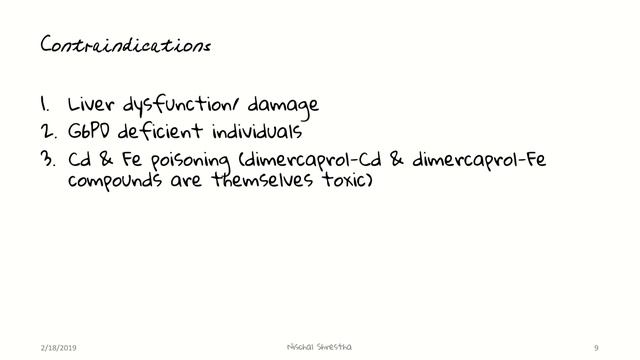 Contraindications
1. Liver dysfunction/ damage
2. G6PD deficient individuals
3. Cd & Fe poisoning (dimercaprol-Cd & dimercaprol-Fe
compounds are themselves toxic)
2/18/2019
Nischal Shrestha
9